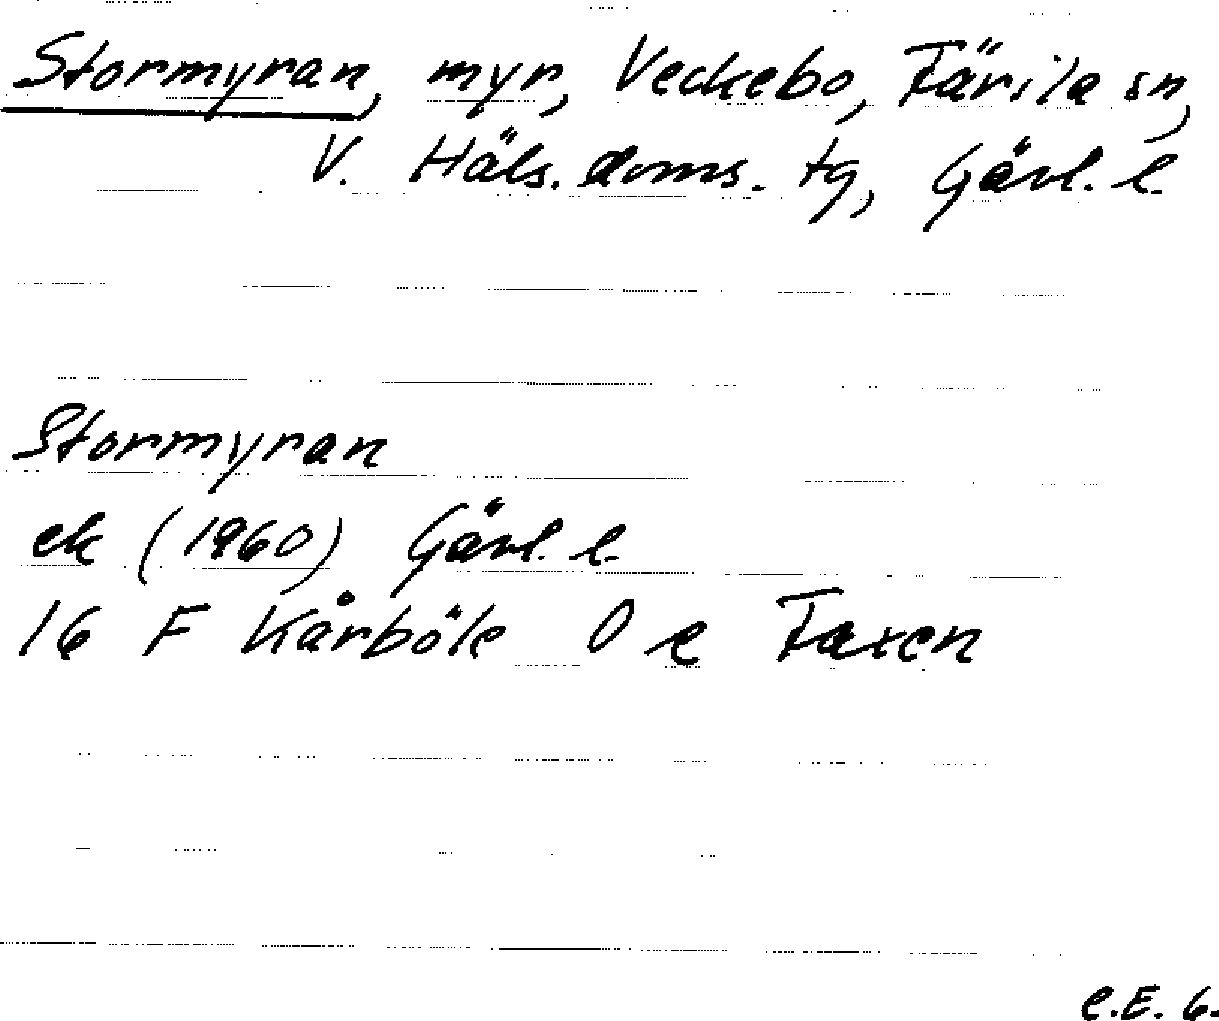 Stormyran, myr, Veckebo, Färila sn,
V. Häls. doms. tg, Gävl. l.
Stormyran
ek (1960) Gävl. l.
16 F Kårböle 0 e Faxen
C.E. G.